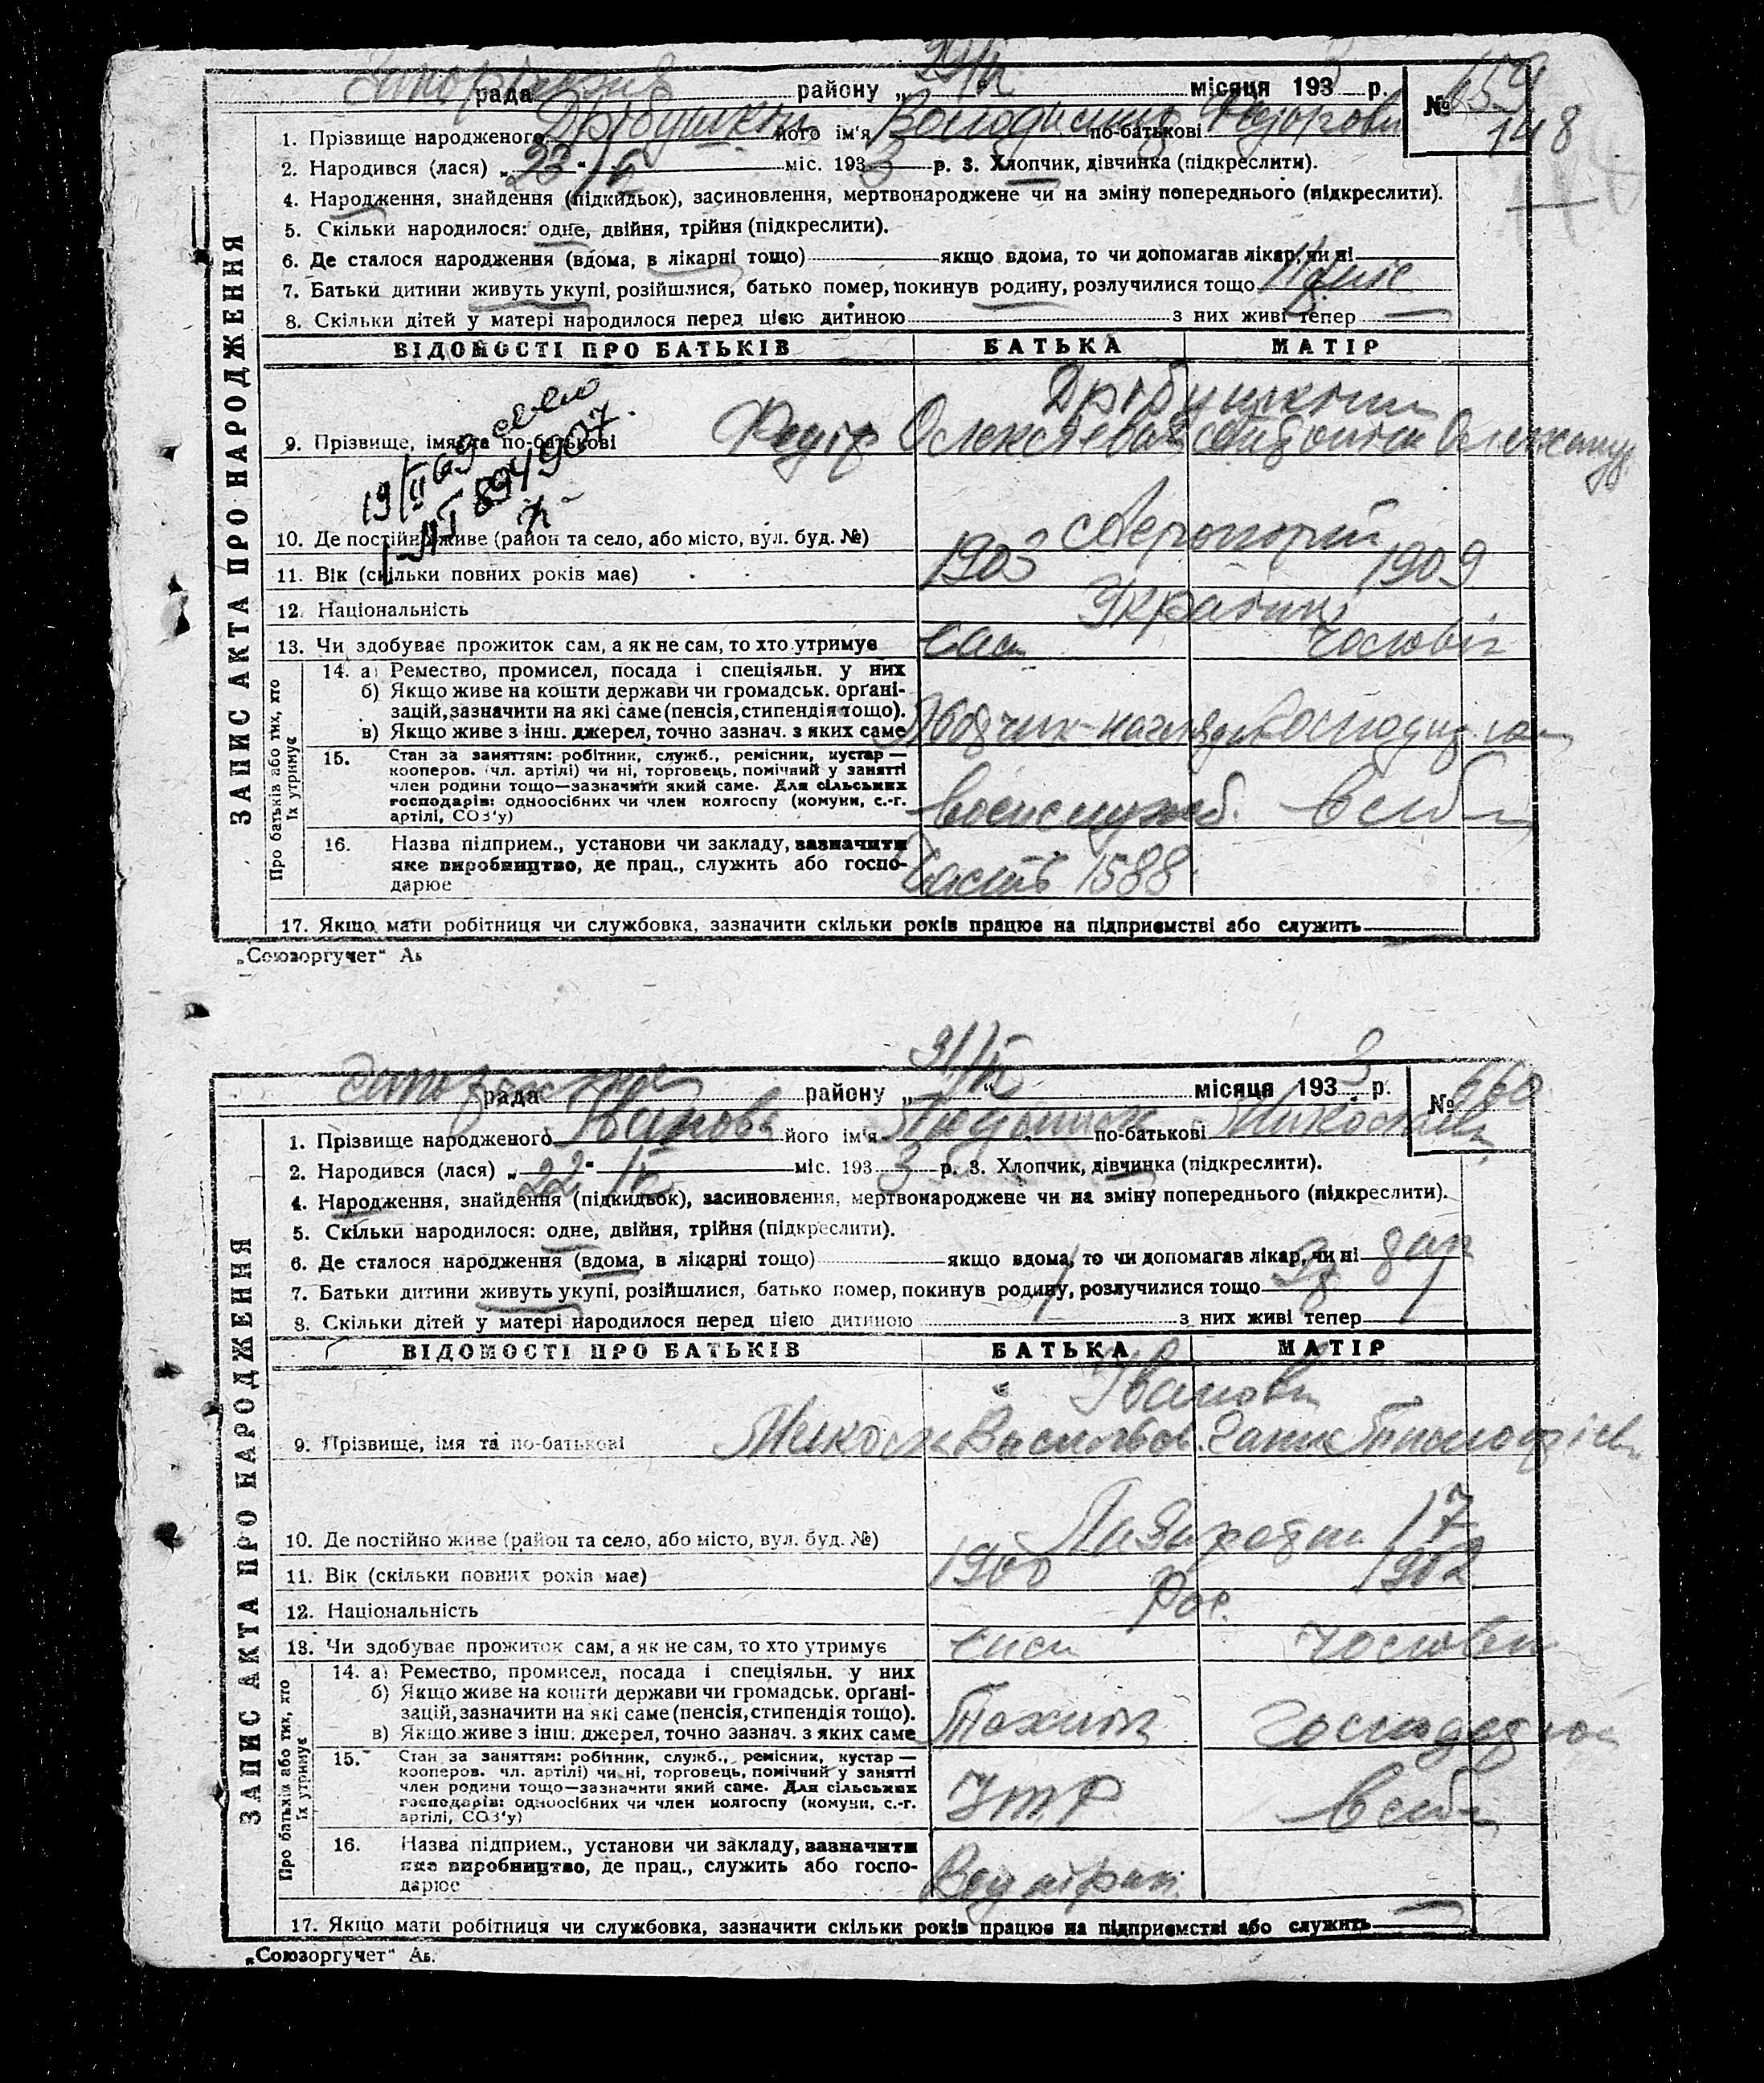 рада району „ “ місяця 193 3 р. № 659
148
1. Прізвище народженого його ім'я Володимир по-батькові Федорович
2. Народився (лася) „23“ міс. 193 3 р. 3. Хлопчик, дівчинка (підкреслити).
4. Народження, знайдення (підкидьок), засиновлення, мертвонароджене чи на зміну попереднього (підкреслити).
5. Скільки народилося: одне, двійня, трійня (підкреслити).
6. Де сталося народження (вдома, в лікарні тощо) якщо вдома, то чи допомагав лікар, чи ні
7. Батьки дитини живуть укупі, розійшлися, батько помер, покинув родину, розлучилися тощо
8. Скільки дітей у матері народилося перед цією дитиною з них живі тепер
ЗАПИС АКТА ПРО НАРОДЖЕННЯ
ВІДОМОСТІ ПРО БАТЬКІВ БАТЬКА МАТІР
9. Прізвище, імя та по-батькові Федір
19/II 69
894907
10. Де постійно живе (район та село, або місто, вул. буд. №)
11. Вік (скільки повних років має) 1903 1909
12. Національність Українці
13. Чи здобуває прожиток сам, а як не сам, то хто утримує сам чоловік
Про батьків або тих, хто їх утримує
14. а) Ремество, промисел, посада і спеціяльн. у них
б) Якщо живе на кошти держави чи громадськ. орґані-
зацій, зазначити на які саме (пенсія, стипендія тощо).
в) Якщо живе з інш. джерел, точно зазнач. з яких саме
15. Стан за заняттям: робітник, служб., ремісник, кустар —
кооперов. (чл. артілі) чи ні, торговець, помічний у занятті
член родини тощо—зазначити який саме. Для сільських
господарів: одноосібних чи член колгоспу (комуни, с.-г.
артілі, СОЗ'у)
військслужб.
16. Назва підприєм., установи чи закладу, зазначити
яке виробництво, де прац., служить або госпо-
дарює
часть 1588
17. Якщо мати робітниця чи службовка, зазначити скільки років працює на підприємстві або служить
„Союзоргучет“ Аь
рада району „ “ місяця 193 3 р. № 660
1. Прізвище народженого Іванова його ім'я по-батькові
2. Народився (лася) „22“ міс. 193 3 р. 3. Хлопчик, дівчинка (підкреслити).
4. Народження, знайдення (підкидьок), засиновлення, мертвонароджене чи на зміну попереднього (підкреслити).
5. Скільки народилося: одне, двійня, трійня (підкреслити).
6. Де сталося народження (вдома, в лікарні тощо) якщо вдома, то чи допомагав лікар, чи ні
7. Батьки дитини живуть укупі, розійшлися, батько помер, покинув родину, розлучилися тощо
8. Скільки дітей у матері народилося перед цією дитиною з них живі тепер
ЗАПИС АКТА ПРО НАРОДЖЕННЯ
ВІДОМОСТІ ПРО БАТЬКІВ БАТЬКА МАТІР
Іванови
9. Прізвище, імя та по-батькові Микола Васильов. Ганна
10. Де постійно живе (район та село, або місто, вул. буд. №) 17
11. Вік (скільки повних років має) 1900 1902
12. Національність Рос.
13. Чи здобуває прожиток сам, а як не сам, то хто утримує сам чоловік
Про батьків або тих, хто їх утримує
14. а) Ремество, промисел, посада і спеціяльн. у них
б) Якщо живе на кошти держави чи громадськ. орґані-
зацій, зазначити на які саме (пенсія, стипендія тощо).
в) Якщо живе з інш. джерел, точно зазнач. з яких саме
Технік
15. Стан за заняттям: робітник, служб., ремісник, кустар —
кооперов. чл. артілі) чи ні, торговець, помічний у занятті
член родини тощо—зазначити який саме. Для сільських
господарів: одноосібних чи член колгоспу (комуни, с.-г.
артілі, СОЗ'у)
ІТР
16. Назва підприєм., установи чи закладу, зазначити
яке виробництво, де прац., служить або госпо-
дарює
17. Якщо мати робітниця чи службовка, зазначити скільки років працює на підприємстві або служить
„Союзоргучет“ Аь.